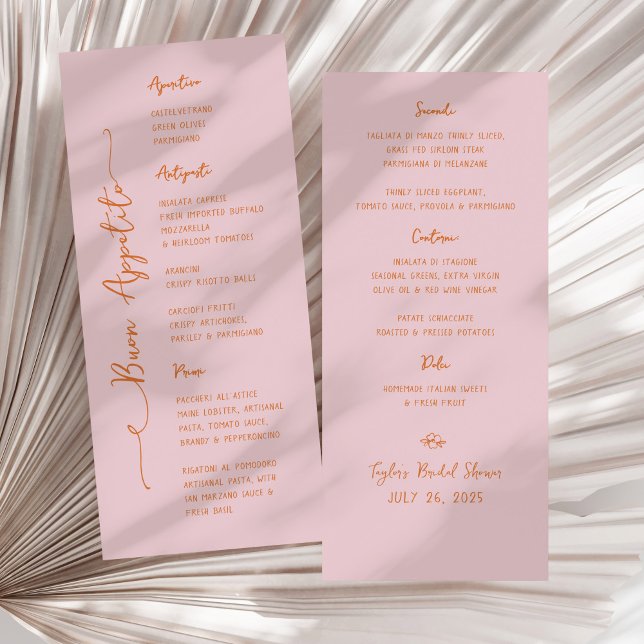 Buon Appetito
Aperitivo
CASTELVETRANO
GREEN OLIVES
PARMIGIANO
Antipasti
INSALATA CAPRESE
FRESH IMPORTED BUFFALO
MOZZARELLA
& HEIRLOOM TOMATOES
ARANCINI
CRISPY RISOTTO BALLS
CARCIOFI FRITTI
CRISPY ARTICHOKES,
PARSLEY & PARMIGIANO
Primi
PACCHERI ALL'ASTICE
MAINE LOBSTER, ARTISANAL
PASTA, TOMATO SAUCE,
BRANDY & PEPPERONCINO
RIGATONI AL POMODORO
ARTISANAL PASTA, WITH
SAN MARZANO SAUCE &
FRESH BASIL
Secondi
TAGLIATA DI MANZO THINLY SLICED,
GRASS FED SIRLOIN STEAK
PARMIGIANA DI MELANZANE
THINLY SLICED EGGPLANT,
TOMATO SAUCE, PROVOLA & PARMIGIANO
Contorni:
INSALATA DI STAGIONE
SEASONAL GREENS, EXTRA VIRGIN
OLIVE OIL & RED WINE VINEGAR
PATATE SCHIACCIATE
ROASTED & PRESSED POTATOES
Dolci
HOMEMADE ITALIAN SWEETS
& FRESH FRUIT
Taylor's Bridal Shower
JULY 26, 2025